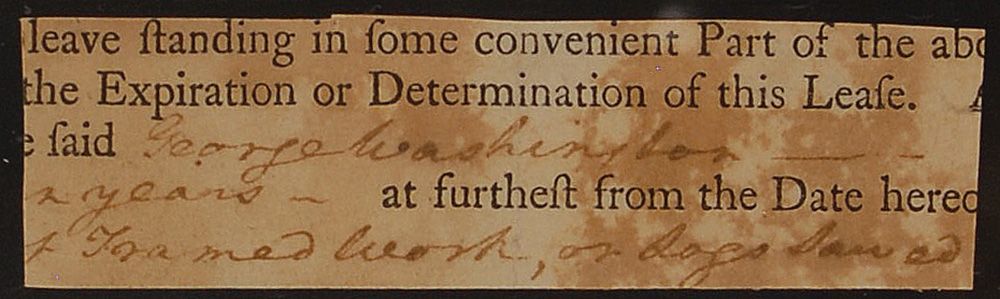 leave ſtanding in ſome convenient Part of the abo
the Expiration or Determination of this Leaſe. A
e ſaid George Washington — -
n years — at furtheſt from the Date hereo
f Framed Work, or Logs Sawed